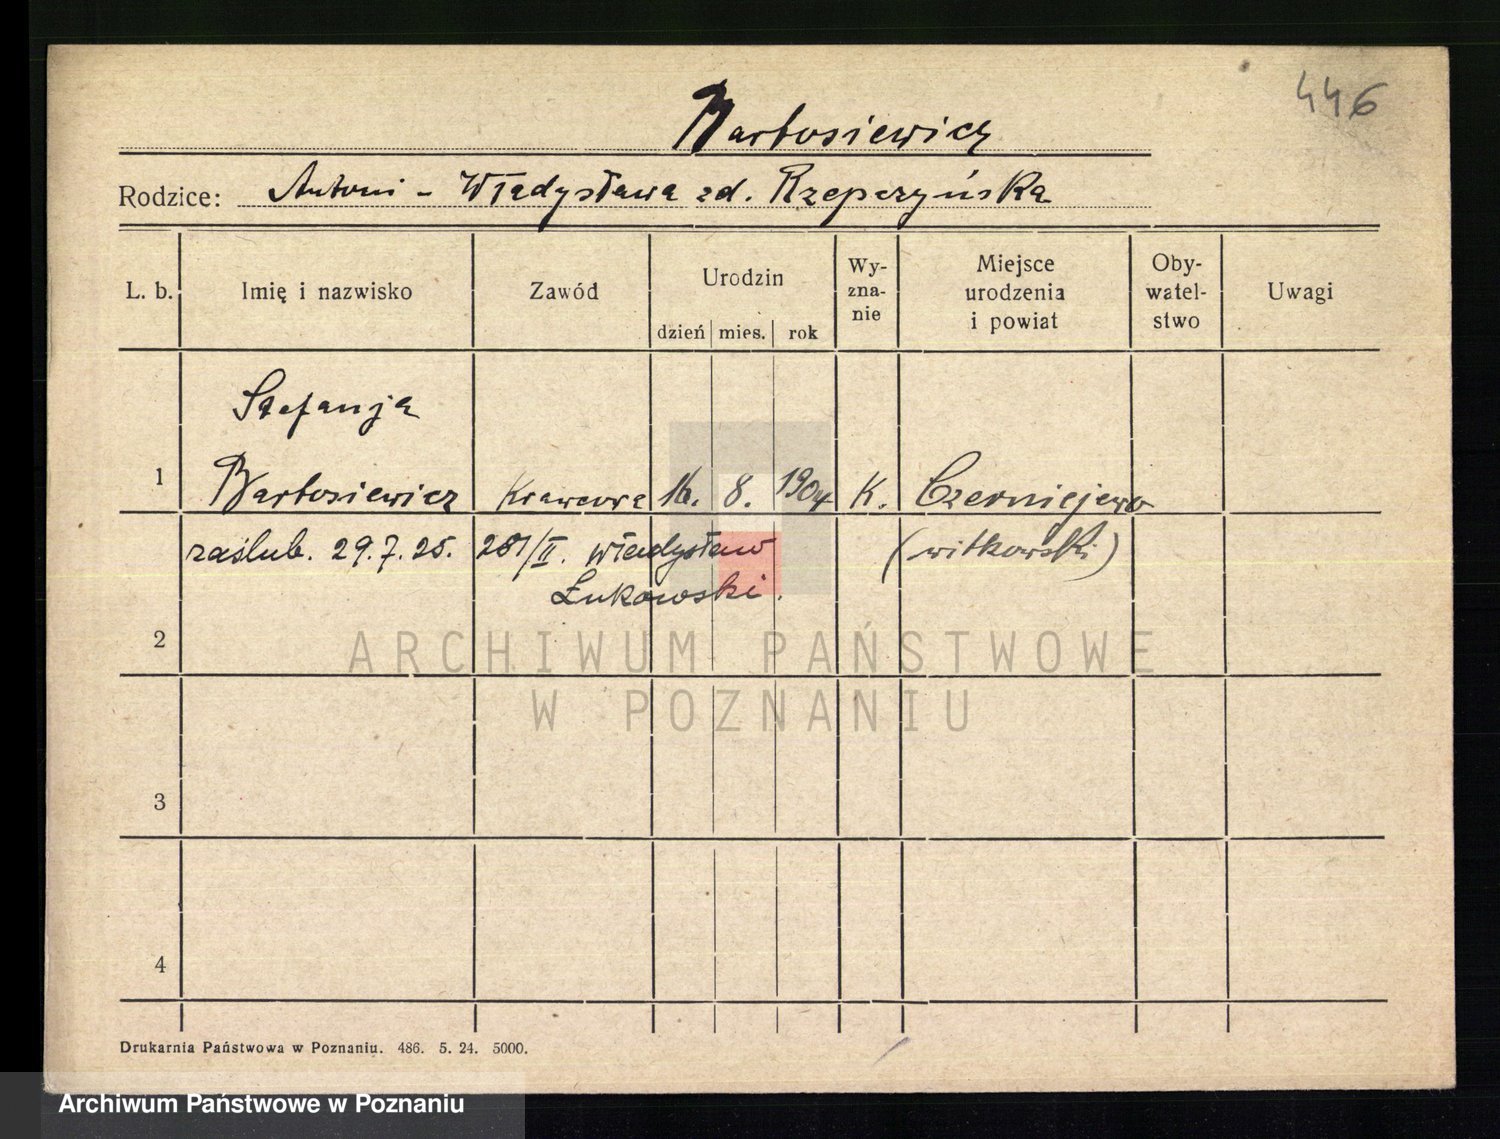 446
Bartosiewicz
Rodzice: Antoni - Władysława zd. Rzepczyńska
L. b. Imię i nazwisko Zawód Urodzin dzień mies. rok Wy-zna-nie Miejsce urodzenia i powiat Oby-watel-stwo Uwagi
Stefanja
1 Bartosiewicz Krawcowa 16. 8. 1904 K. Czerniejewo
zaślub. 29.7.25. 281/II. Władysław (witkowski)
Łukowski.
2
ARCHIWUM PAŃSTWOWE
W POZNANIU
3
4
Drukarnia Państwowa w Poznaniu. 486. 5. 24. 5000.
Archiwum Państwowe w Poznaniu